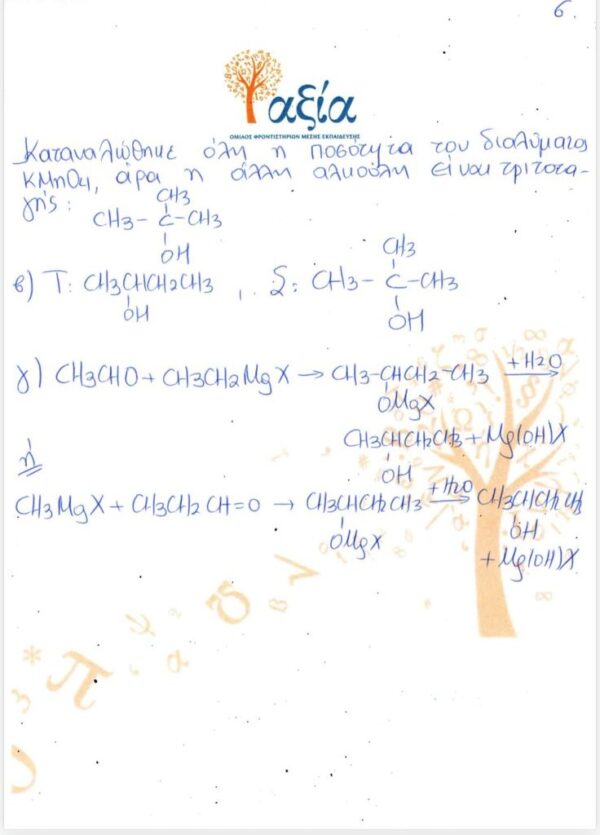 6.
αξία
ΟΜΙΛΟΣ ΦΡΟΝΤΙΣΤΗΡΙΩΝ ΜΕΣΗΣ ΕΚΠΑΙΔΕΥΣΗΣ
Καταναλώθηκε όλη η ποσότητα του διαλύματος
KMnO4, άρα η άλλη αλκοόλη είναι τριτοτα-
γής:
CH3
CH3-C-CH3
OH
β) T: CH3CHCH2CH3 , S: CH3-C-CH3
CH3
OH
OH
γ) CH3CHO + CH3CH2MgX → CH3-CHCH2-CH3 +H2O →
OMgX
CH3CHCH2CH3 + Mg(OH)X
OH
ή
CH3MgX + CH3CH2CH=O → CH3CHCH2CH3 +H2O → CH3CHCH2CH3
OMgX
OH
+Mg(OH)X